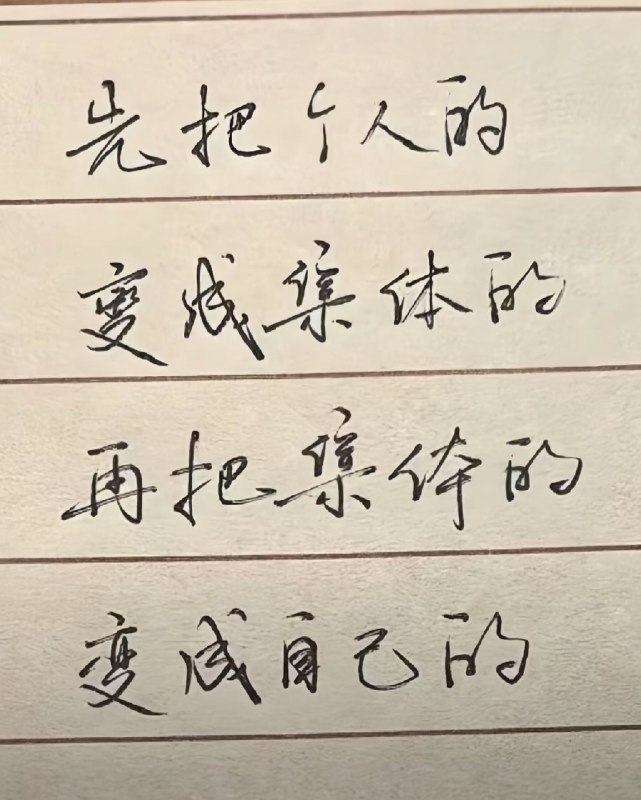 先把个人的
变成集体的
再把集体的
变成自己的